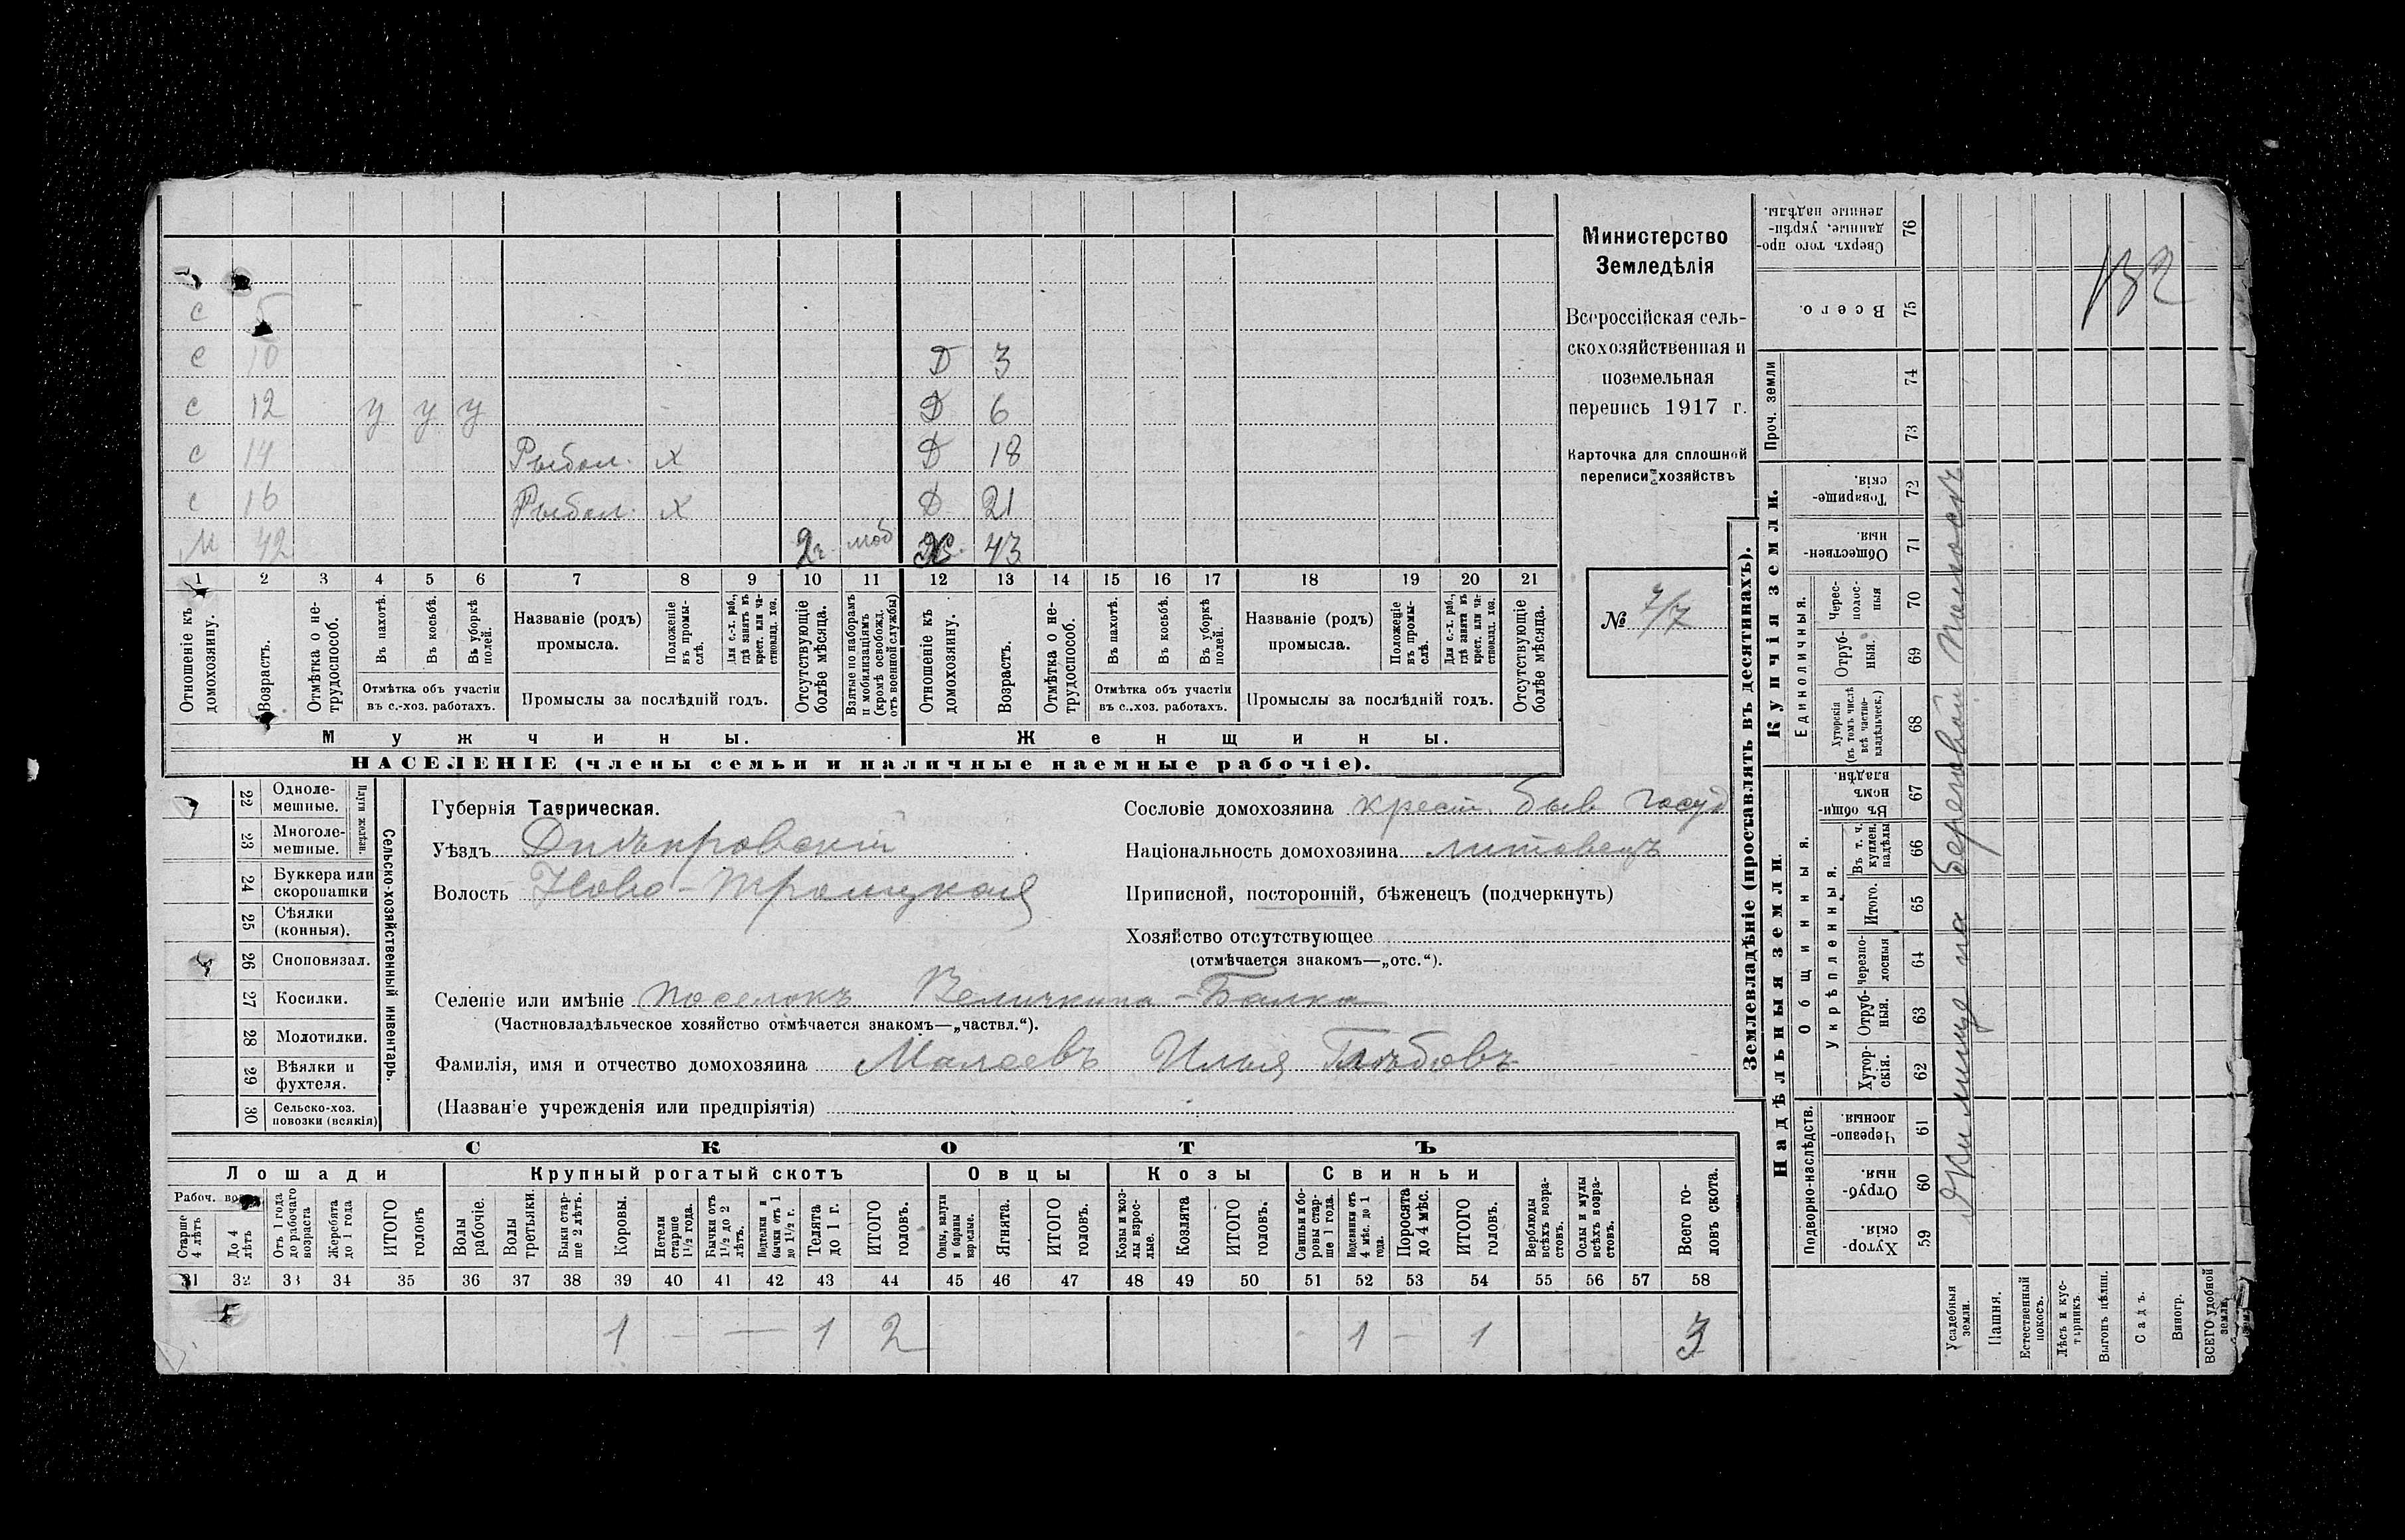 С 5
С 10 Д 3
С 12 у у у Д 6
С 14 Рыбол. х Д 18
С 16 Рыбол. х Д 21
М 42 2 г. моб Ж. 43
1 2 3 4 5 6 7 8 9 10 11 12 13 14 15 16 17 18 19 20 21
Отношеніе къ домохозяину.
Возрастъ.
Отмѣтка о не-трудоспособ.
Въ пахотѣ.
Въ косьбѣ.
Въ уборкѣ полей.
Отмѣтка объ участіи
въ с.-хоз. работахъ.
Названіе (родъ)
промысла.
Положеніе въ промы-слѣ.
Для с.-х. раб., гдѣ занятъ въ крест. или ча-стновлад. хоз.
Промыслы за послѣдній годъ.
Отсутствующіе болѣе мѣсяца.
Взятые по наборамъ и мобилизаціямъ (кромѣ освобожд. отъ военной службы)
Отношеніе къ домохозяину.
Возрастъ.
Отмѣтка о не-трудоспособ.
Въ пахотѣ.
Въ косьбѣ.
Въ уборкѣ полей.
Отмѣтка объ участіи
въ с..хоз. работахъ.
Названіе (родъ)
промысла.
Положеніе въ промы-слѣ.
Для с.-х. раб., гдѣ занята въ крест. или ча-стновлад. хоз.
Промыслы за послѣдній годъ.
Отсутствующіе болѣе мѣсяца.
Мужчины.
Женщины.
НАСЕЛЕНІЕ (члены семьи и наличные наемные рабочіе).
Министерство
Земледѣлія
Всероссійская сель-
скохозяйственная и
поземельная
перепись 1917 г.
Карточка для сплошной
переписи хозяйств
№ 7/7
22 Одноле-мешные.
23 Многоле-мешные.
Плуги желѣзн.
24 Буккера или скоропашки
25 Сѣялки (конныя).
26 Сноповязал.
27 Косилки.
28 Молотилки.
29 Вѣялки и фухтеля.
30 Сельско-хоз. повозки (всякія)
Сельско-хозяйственный инвентарь.
Губернія Таврическая.
Уѣздъ Днѣпровскій
Волость Ново-Троицкая
Сословіе домохозяина крест. быв госуд
Національность домохозяина литовецъ
Приписной, посторонній, бѣженецъ (подчеркнуть)
Хозяйство отсутствующее
(отмѣчается знакомъ—„отс.“).
Селеніе или имѣніе поселокъ Величкина-Балка
(Частновладѣльческое хозяйство отмѣчается знакомъ—„частвл.“).
Фамилія, имя и отчество домохозяина Малеевъ Илья Глѣбовъ
(Названіе учрежденія или предпріятія)
СКОТЪ
Лошади Крупный рогатый скотъ Овцы Козы Свиньи
Рабоч. воз
Старше 4 лѣтъ
До 4 лѣтъ
Отъ 1 года до рабочаго возраста
Жеребята до 1 года
ИТОГО головъ
Волы рабочіе.
Волы третьяки.
Быки стар-ше 2 лѣтъ.
Коровы.
Нетели старше 1½ года.
Бычки отъ 1½ до 2 лѣтъ.
Подтелки и бычки отъ 1 до 1½ г.
Телята до 1 г.
ИТОГО головъ.
Овцы, валухи и бараны взрослые.
Ягнята.
ИТОГО головъ.
Козы и коз-лы взрос-лые.
Козлята
ИТОГО головъ.
Свиньи и бо-ровы стар-ше 1 года.
Подсвинки отъ 4 мѣс. до 1 года.
Поросята до 4 мѣс.
ИТОГО головъ.
Верблюды всѣхъ возра-стовъ.
Ослы и мулы всѣхъ возра-стовъ.
Всего го-ловъ скота.
31 32 33 34 35 36 37 38 39 40 41 42 43 44 45 46 47 48 49 50 51 52 53 54 55 56 57 58
1 — — 1 2 1 — 1 3
Землевладѣніе (проставлять въ десятинахъ).
Надѣльныя земли. Купчія земли.
Подворно-наслѣдств.
Общинныя.
Укрѣпленныя.
Единоличныя.
Проч. земли
Хутор-скія. 59
Отруб-ныя. 60
Черезпо-лосныя 61
Хутор-скія. 62
Отруб-ныя. 63
Черезпо-лосныя 64
Итого. 65
Въ т. ч. куплен. надѣлы 66
Въ общи-номъ владѣн. 67
Хуторскія (въ томъ числѣ всѣ частно-владѣльческ.) 68
Отруб-ныя. 69
Черес-полос-ныя 70
Обществен-ныя. 71
Товарище-скія. 72
73
74
Всего. 75
Сверхъ того про-данные, укрѣп-ленные надѣлы. 76
Усадебныя земли.
Пашня.
Естественный покосъ.
Лѣсъ и кус-тарникъ.
Выгонъ цѣлин.
Садъ.
Виногр.
ВСЕГО удобной земли.
Жилище на береговой полосѣ
132